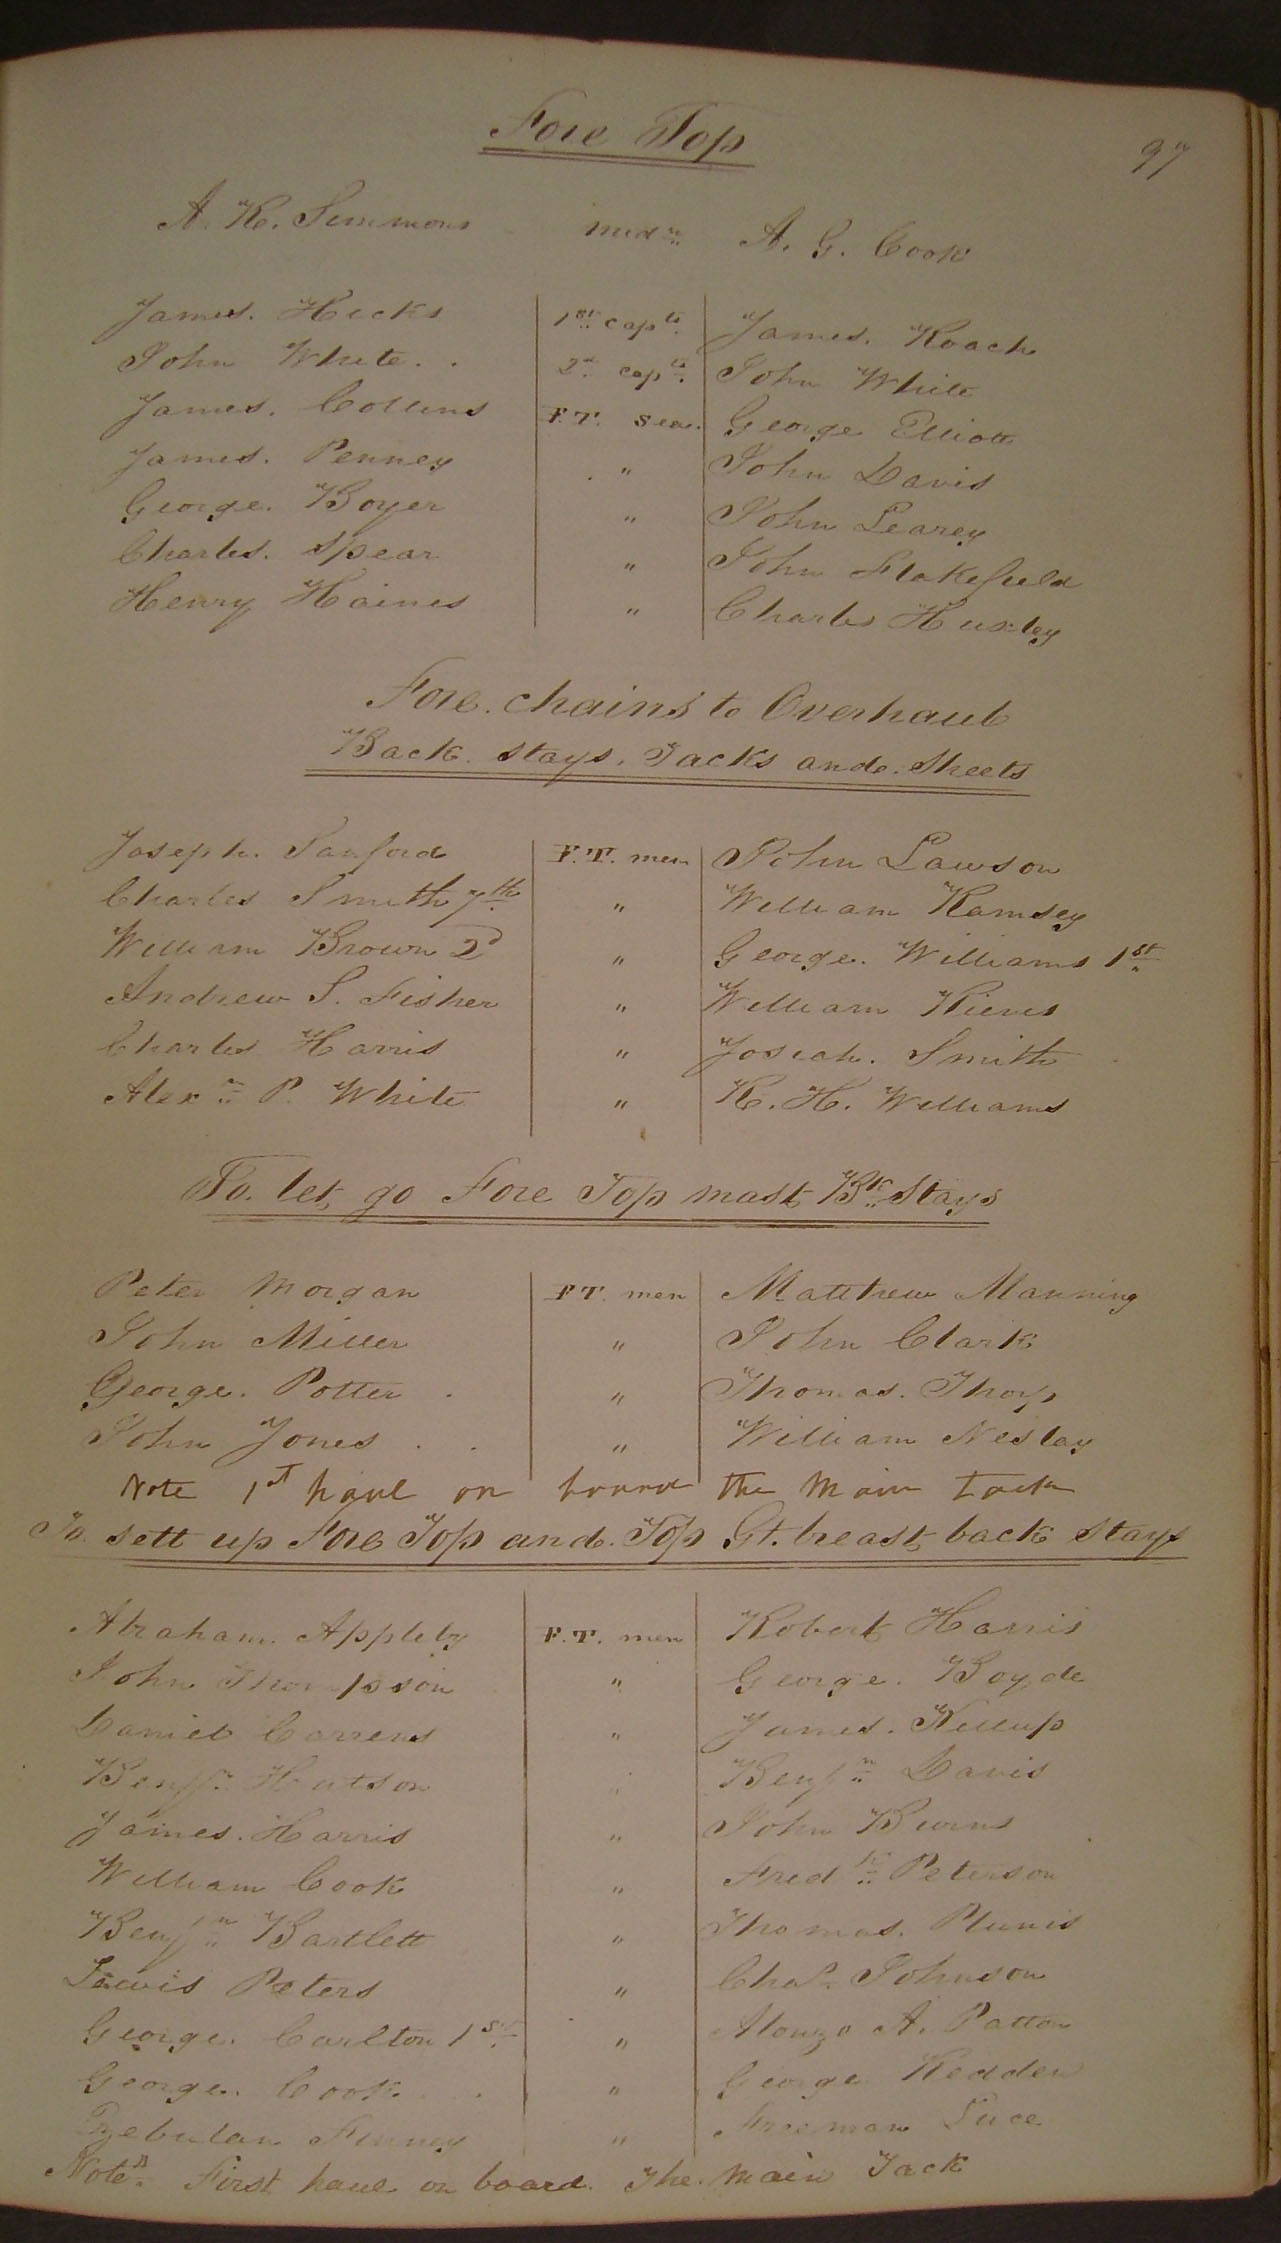 97
Fore Top
A. K. Simmons midn A. G. Cook
James. Hicks 1st capts. James. Roach
John White . . 2d capts. John White
James. Collins F.T. Sea. George Elliott
James. Penney " John Davis
George. Boyer " John Learey
Charles. Spear " John Flakefield
Henry Haines " Charles Huxley
Fore. chains to Overhaul
Back. stays. Tacks and. Sheets
Joseph. Sanford F.T. men John Lawson
Charles Smith 7th " William Ramsey
William Brown 2d " George. Williams 1st
Andrew S. Fisher " William Kieves
Charles Harris " Josiah. Smith
Alexr P. White " R. H. Williams
To. let go Fore Top mast Bk Stays
Peter Morgan F.T. men Matthew Manning
John Miller " John Clark
George. Potter . " Thomas. Thorp
John Jones . . " William Neslay
Note 1st haul on board the Main tack
To. sett up Fore Top and. Top Gt. breast back stays
Abraham. Appleby F.T. men Robert Harris
John Thompson " George. Boyde
Daniel Carrens " James. Kellup
Benjn Hutson " Benjn Davis
James. Harris " John Burns
William Cook " Fredk Peterson
Benjn Bartlett " Thomas. Plunis
Lewis Peters " Chas. Johnson
George. Carlton 1st " Alonzo A. Patton
George. Cook . . " George Redden
Zebulan Finney " Freeman Luce
Note. First haul on board. The. Main Tack